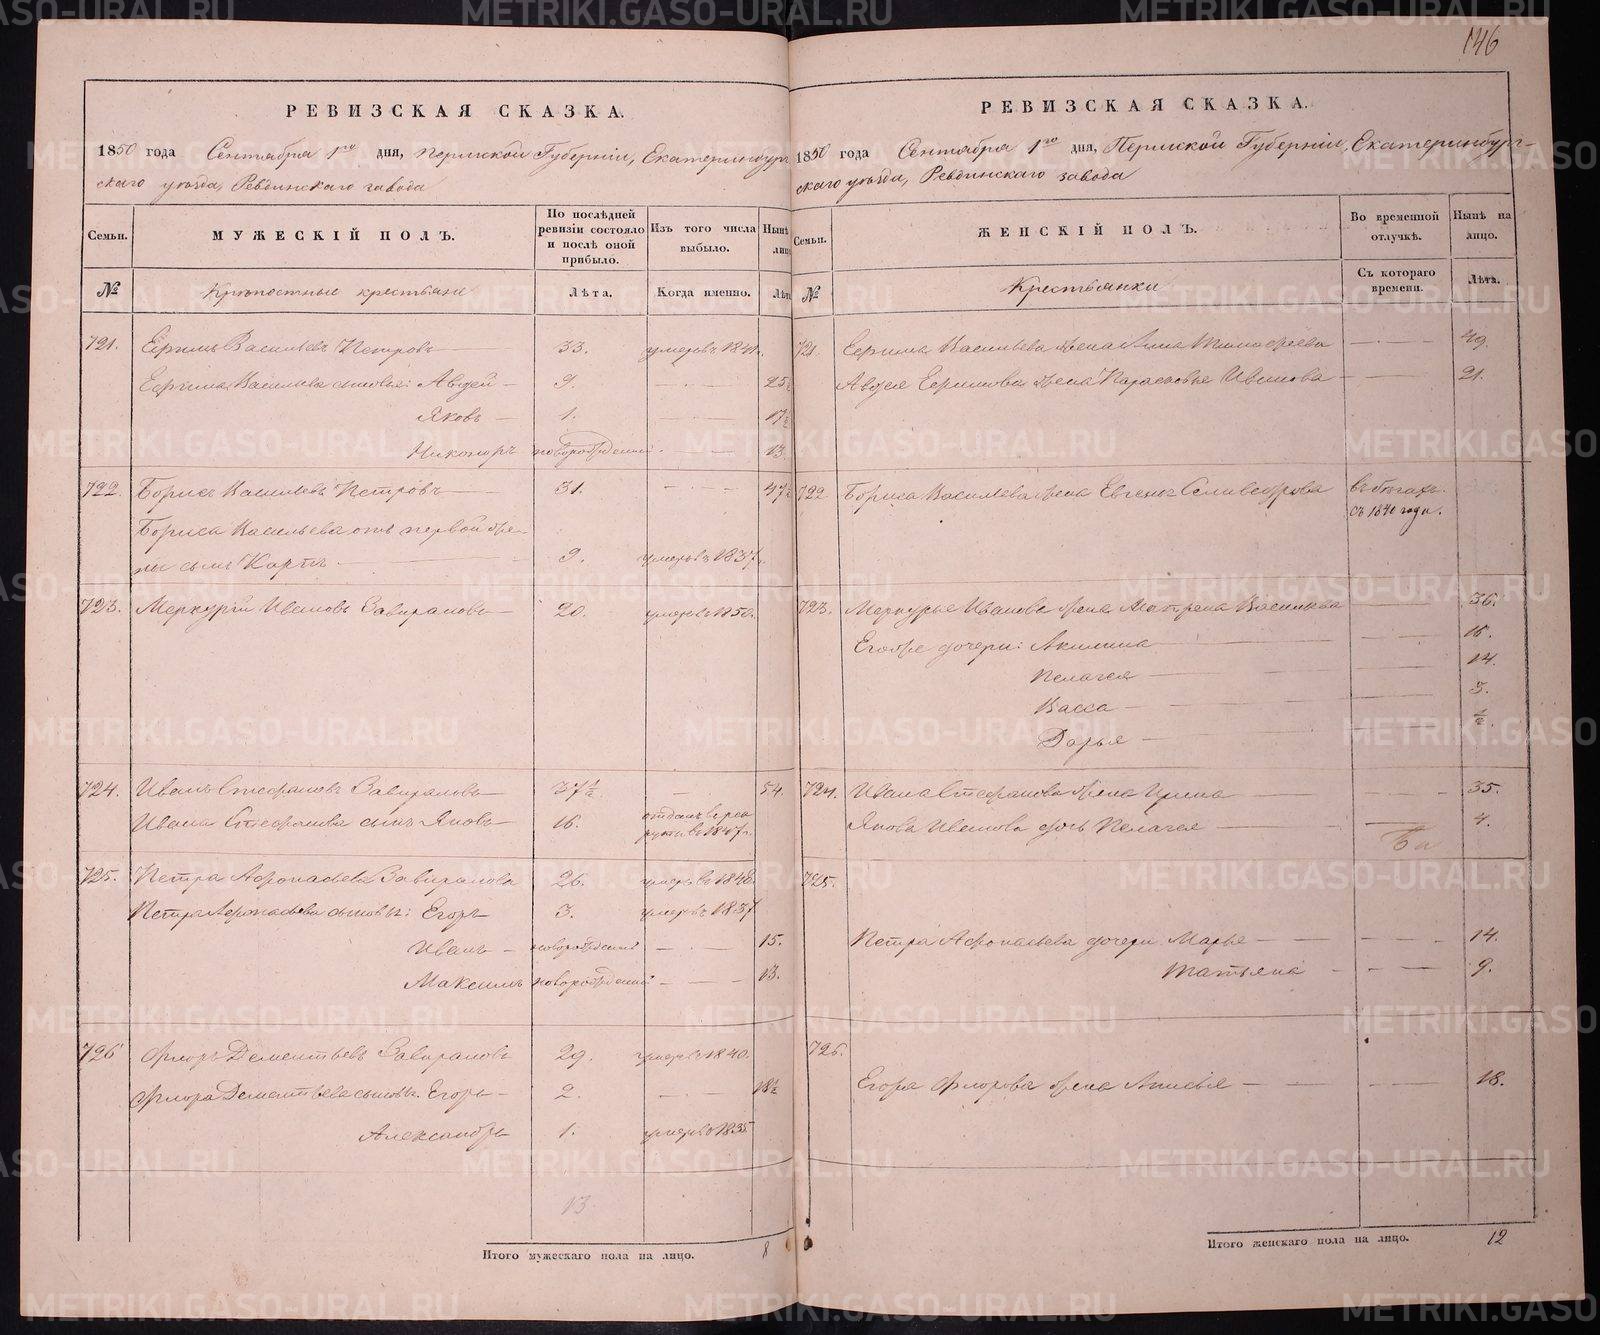 146
РЕВИЗСКАЯ СКАЗКА.
1850 года Сентября 1го дня, Пермской Губерніи, Екатеринбург
скаго уезда, Ревдинскаго завода
Семьи. МУЖЕСКІЙ ПОЛЪ. По послѣдней ревизіи состояло и послѣ оной прибыло. Изъ того числа выбыло. Нынѣ на лицо
№ Крѣпостные крестьяне Лѣта. Когда именно. Лѣта
721. Ефимъ Васильевъ Петровъ 33. умеръ въ 1841.
Ефима Васильева сыновья: Авдей 9. 25½
Яковъ 1. 17½
Никоноръ новорожденный 13.
722. Борисъ Васильевъ Петровъ 31. 47½
Бориса Васильева отъ первой же-
ны сынъ Карпъ 9. умеръ въ 1837.
723. Меркурій Ивановъ Завираловъ 20. умеръ въ 1850.
724. Иванъ Стефановъ Завираловъ 37½ 54.
Ивана Стефанова сынъ Яковъ 16. отданъ въ рек
руты въ 1847г.
725. Петра Афонасьева Завиралова 26. умеръ въ 1848.
Петра Афонасьева сыновья: Егоръ 3. умеръ въ 1837
Иванъ новорожденный 15.
Максимъ новорожденный 13.
726 Флоръ Дементьевъ Завираловъ 29. умеръ въ 1840.
Флора Дементьева сыновья. Егоръ 2. 18½
Александръ 1. умеръ въ 1835
13
Итого мужескаго пола на лицо. 8
РЕВИЗСКАЯ СКАЗКА.
1850 года Сентября 1го дня, Пермской Губерніи, Екатеринбург-
скаго уезда, Ревдинскаго завода
Семьи. ЖЕНСКІЙ ПОЛЪ. Во временной отлучкѣ. Нынѣ на лицо.
№ Крестьянки Съ котораго времени. Лѣта.
721. Ефима Васильева жена Анна Тимофеева 49.
Авдея Ефимова жена Парасковья Иванова 21.
722 Бориса Васильева жена Евгенья Селиверстова въ бегахъ
съ 1840 года.
723. Меркурья Иванова жена Матрена Васильева 36.
Егоже дочери: Акилина 16.
Пелагея 14.
Васса 5.
Дарья ½.
724. Ивана Стефанова жена Ирина 35.
Якова Иванова дочь Пелагея 4.
725.
Петра Афонасьева дочери Марья 14.
Татьяна 9.
726.
Егора Флорова жена Анисья 18.
Итого женскаго пола на лицо. 12
METRIKI.GASO-URAL.RU